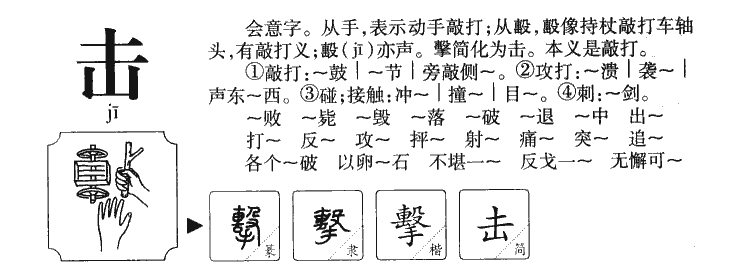 击
jī
会意字。从手,表示动手敲打;从毄,毄像持杖敲打车轴
头,有敲打义;毄(jī)亦声。擊简化为击。本义是敲打。
①敲打:～鼓｜～节｜旁敲侧～。②攻打:～溃｜袭～｜
声东～西。③碰;接触:冲～｜撞～｜目～。④刺:～剑。
～败 ～毙 ～毁 ～落 ～破 ～退 ～中 出～
打～ 反～ 攻～ 抨～ 射～ 痛～ 突～ 追～
各个～破 以卵～石 不堪一～ 反戈一～ 无懈可～
擊 篆
擊 隶
擊 楷
击 简